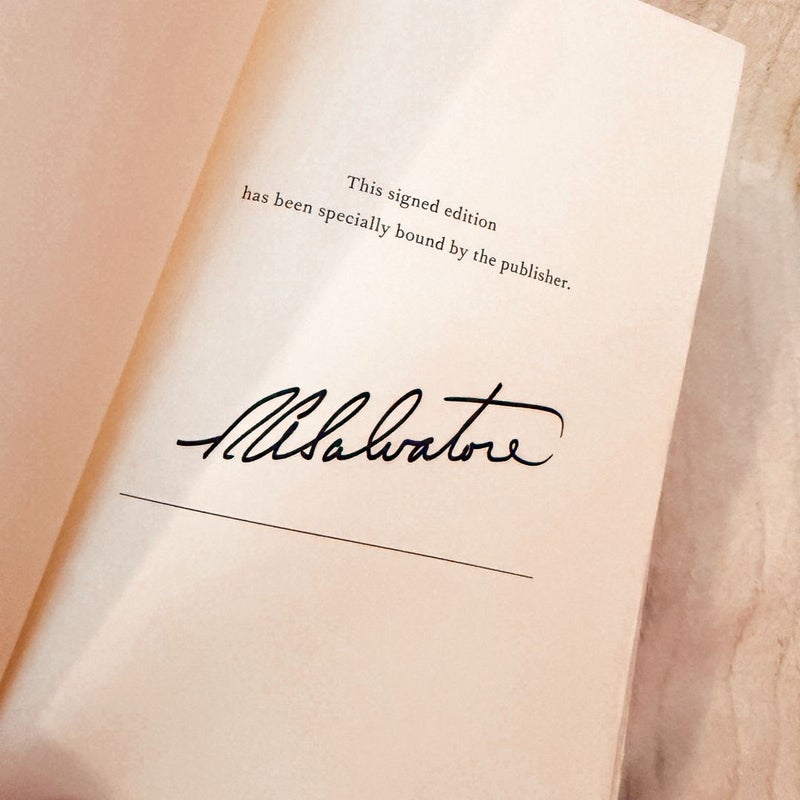 This signed edition
has been specially bound by the publisher.
RASalvatore